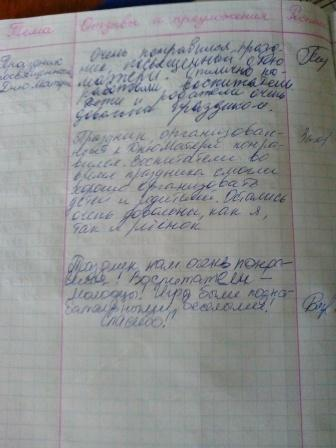 Тема Отзывы и предложения
Праздник посвященный Дню Матери
Очень понравился празд-
ник посвященный Дню
матери. Отлично по-
работали воспитатели
Дети и родители очень
довольны праздником.
Праздник организован-
ный к Дню Матери понра-
вился. Воспитатели во
время праздника смогли
хорошо организовать
детей и родителей. Остались
очень довольны, как я,
так и рёбёнок
Праздник нам очень понра-
вился! Воспитатели -
молодцы! Игры были позна-
вательными, весёлыми!
Спасибо!